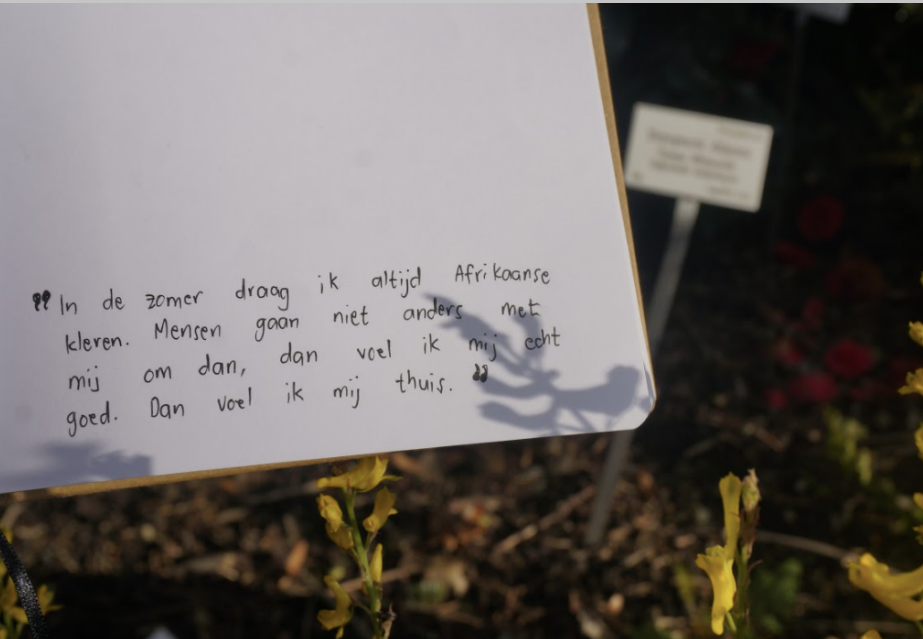 "In de zomer draag ik altijd Afrikaanse
kleren. Mensen gaan niet anders met
mij om dan, dan voel ik mij echt
goed. Dan voel ik mij thuis."